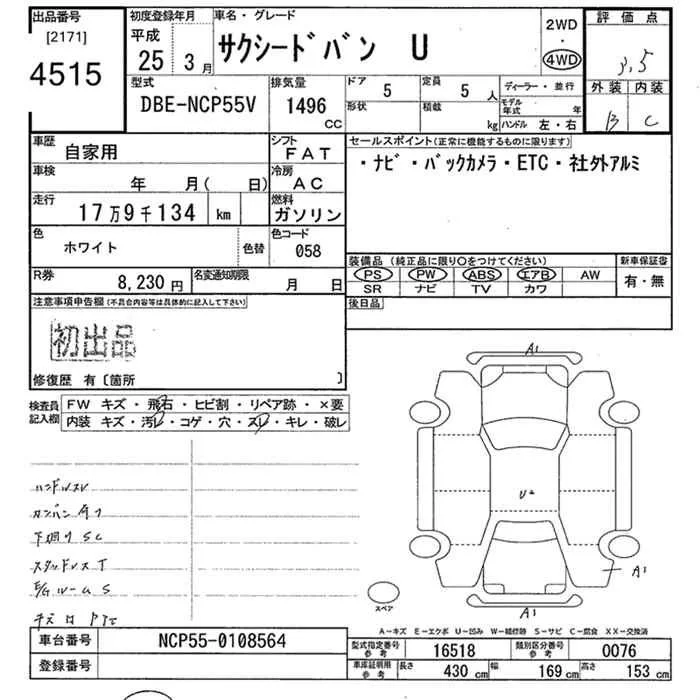 出品番号
[2171]
4515
初度登録年月
平成
25年 3月
車名・グレード
サクシードバン U
2WD
・
4WD
評価点
3.5
外装 内装
B C
型式
DBE-NCP55V
排気量
1496
CC
ドア
5
定員
5 人
形状
積載
kg
ディーラー・並行
モデル年式 年
ハンドル 左・右
車歴
自家用
シフト
FAT
車検
年 月( 日)
冷房
AC
走行
17万9千134 km
燃料
ガソリン
色
ホワイト
色替
色コード
058
R券
8,230円
名変通知期限
月 日
セールスポイント(正常に機能するものに限ります)
・ナビ・バックカメラ・ETC・社外アルミ
装備品 (純正品に限り○をつけてください)
新車保証書
PS PW ABS エアB AW
SR ナビ TV カワ
有・無
後日品
注意事項申告欄(不具合内容等は具体的に記入して下さい)
初出品
修復歴 有〔箇所 〕
検査員記入欄
FW キズ・飛石・ヒビ割・リペア跡・×要
内装 キズ・汚レ・コゲ・穴・スレ・キレ・破レ
ハンドルスレ
下廻りSC
A1
U2
A1
A1
スペア
A－キズ E－エクボ U－凹み W－補修跡 S－サビ C－腐食 XX－交換済
車台番号
NCP55-0108564
登録番号
型式指定番号 参考
16518
類別区分番号 参考
0076
車庫証明用 参考
長さ 430 cm
幅 169 cm
高さ 153 cm